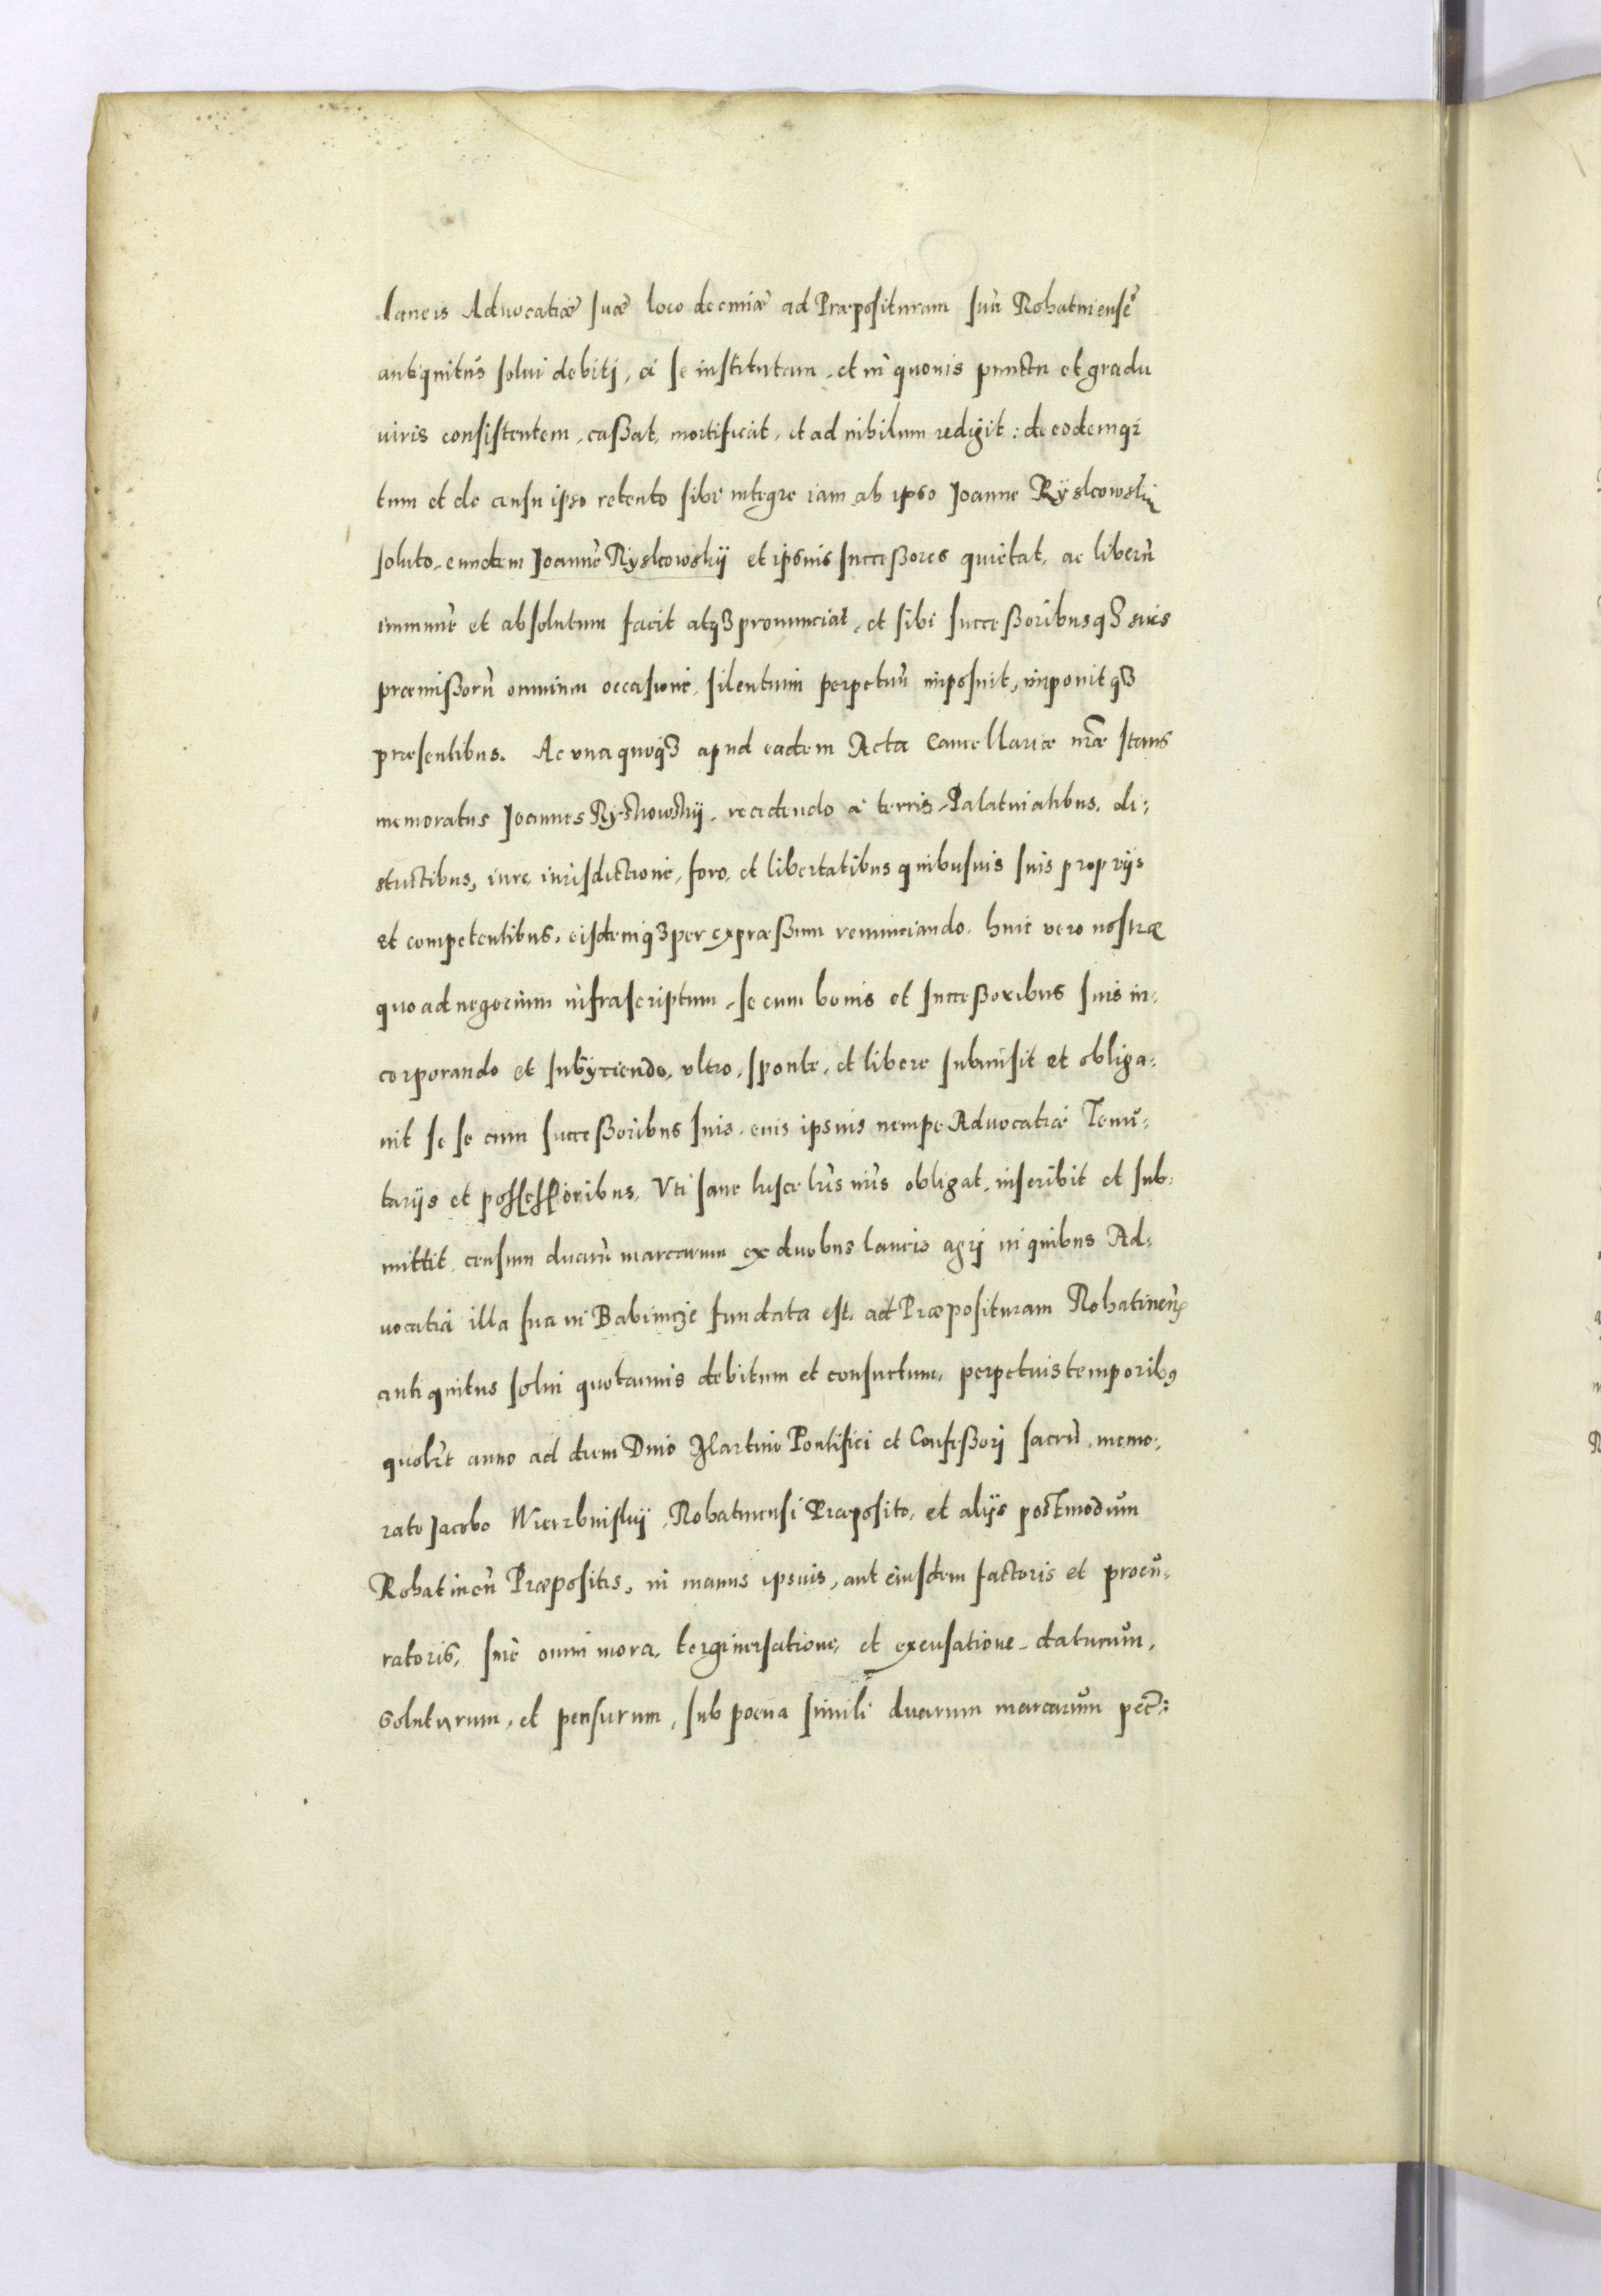 laneis Advocatiæ suæ loco decimæ ad Præposituram suã Rohatinensẽ
antiquitùs solui debitj, à se institutam, et in quouis punctu et gradu
iuris consistentem, caßat, mortificat, et ad nihilum redigit: de eodemq3
tum et de censu ipso retento sibi integre iam ab ipso Joanne Ryskowskij
soluto, eundem Joannẽ Ryskowskij et ipsuis succeßores quietat, ac liberũ
immunẽ et absolutum facit atq3 pronunciat, et sibi succeßoribusq3 suis
præmißorũ omnium occasione, silentium perpetuũ imposuit, imponitq3
præsentibus. Ac vna quoq3 apud eadem Acta Cancellariæ nr̃æ stans
memoratus Joannes Ryskowskij, recedendo à terris, Palatinatibus, di:
strictibus, iure, iurisdictione, foro, et libertatibus quibusuis suis proprijs
et competentibus, eisdemq3 per expræßum renunciando, huic vero nostræ
quo ad negocium infrascriptum, se cum bonis et succeßoribus suis in:
corporando et subijciendo, vltro, sponte, et libere submisit et obliga:
uit se se cum succeßoribus suis, eius ipsuis nempe Advocatiæ Tenu:
tarijs et possessoribus, Vti sane hisce lr̃is nr̃is obligat, inscribit et sub:
mittit, censum duarũ marcarum ex duobus laneis agrj in quibus Ad:
vocatia illa sua in Babincze fundata est, ad Præposituram Rohatinen̄
antiquitus solui quotannis debitum et consuetum, perpetuis temporib9
quolt anno ad diem Diuo Martino Pontifici et Confeßorj sacrũ, memo:
rato Jacobo Wierzbinskij, Rohatinensi Præposito, et alijs postmodum
Rohatinen̄ Præpositis, in manus ipsuis, aut eiusdem factoris et procu:
ratoris, sine omni mora, tergiuersatione, et excusatione daturum,
soluturum, et pensurum, sub poena simili duarum marcarum pec̃: